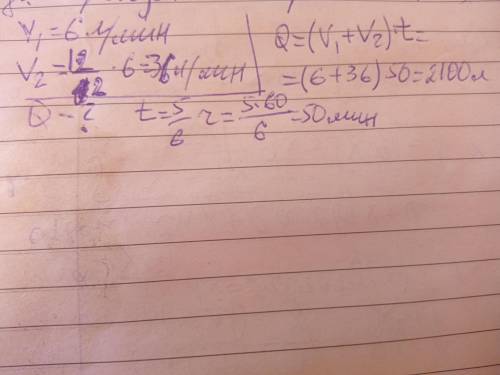 V₁=6 л/мин
V₂=12/2·6=36 л/мин
Q-? t=5/6 ч=5·60/6=50мин
Q=(V₁+V₂)·t=
=(6+36)50=2100л